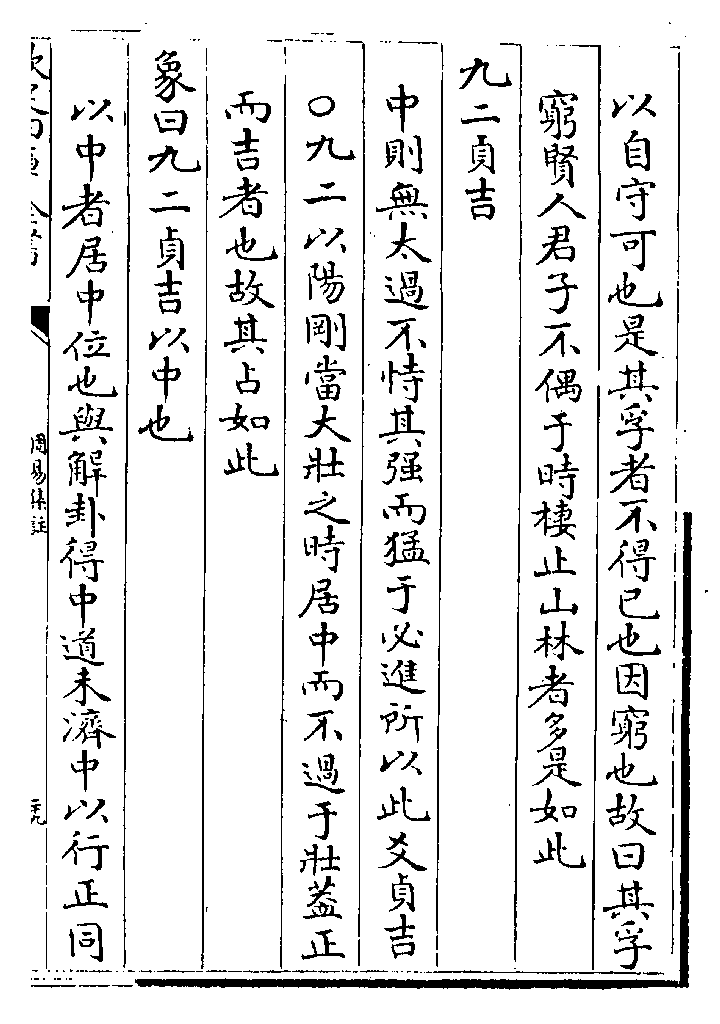 以自守可也是其孚者不得已也因窮也故曰其孚
窮賢人君子不偶于時棲止山林者多是如此
九二貞吉
中則無太過不恃其强而猛于必進所以此爻貞吉
○九二以陽剛當大壯之時居中而不過于壯蓋正
而吉者也故其占如此
象曰九二貞吉以中也
以中者居中位也與解卦得中道未濟中以行正同
周易集註